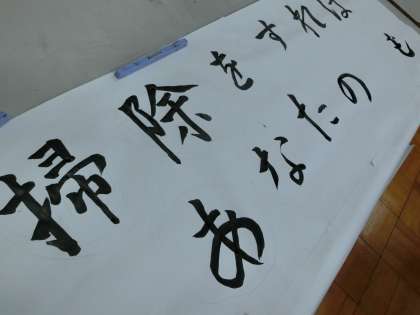 掃除をすれば
あなたの